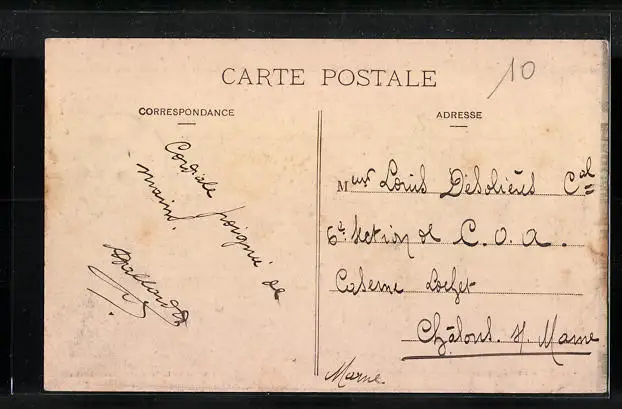 CARTE POSTALE
10
CORRESPONDANCE
Cordiale poignée de
main.
ADRESSE
Meur Louis Désoliers Cal
6e Section de C. O. A.
Caserne Lochet
Châlons. s/ Marne
Marne.